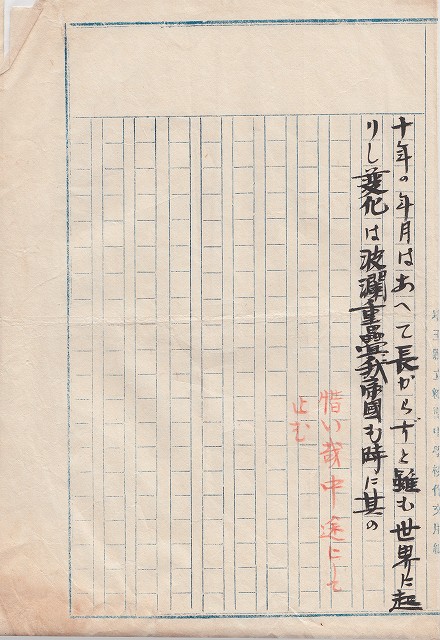 十年の年月はあへて長からずと雖も世界に起
りし變化は波瀾重疊我帝國も時に其の
惜い哉中途にて
止む